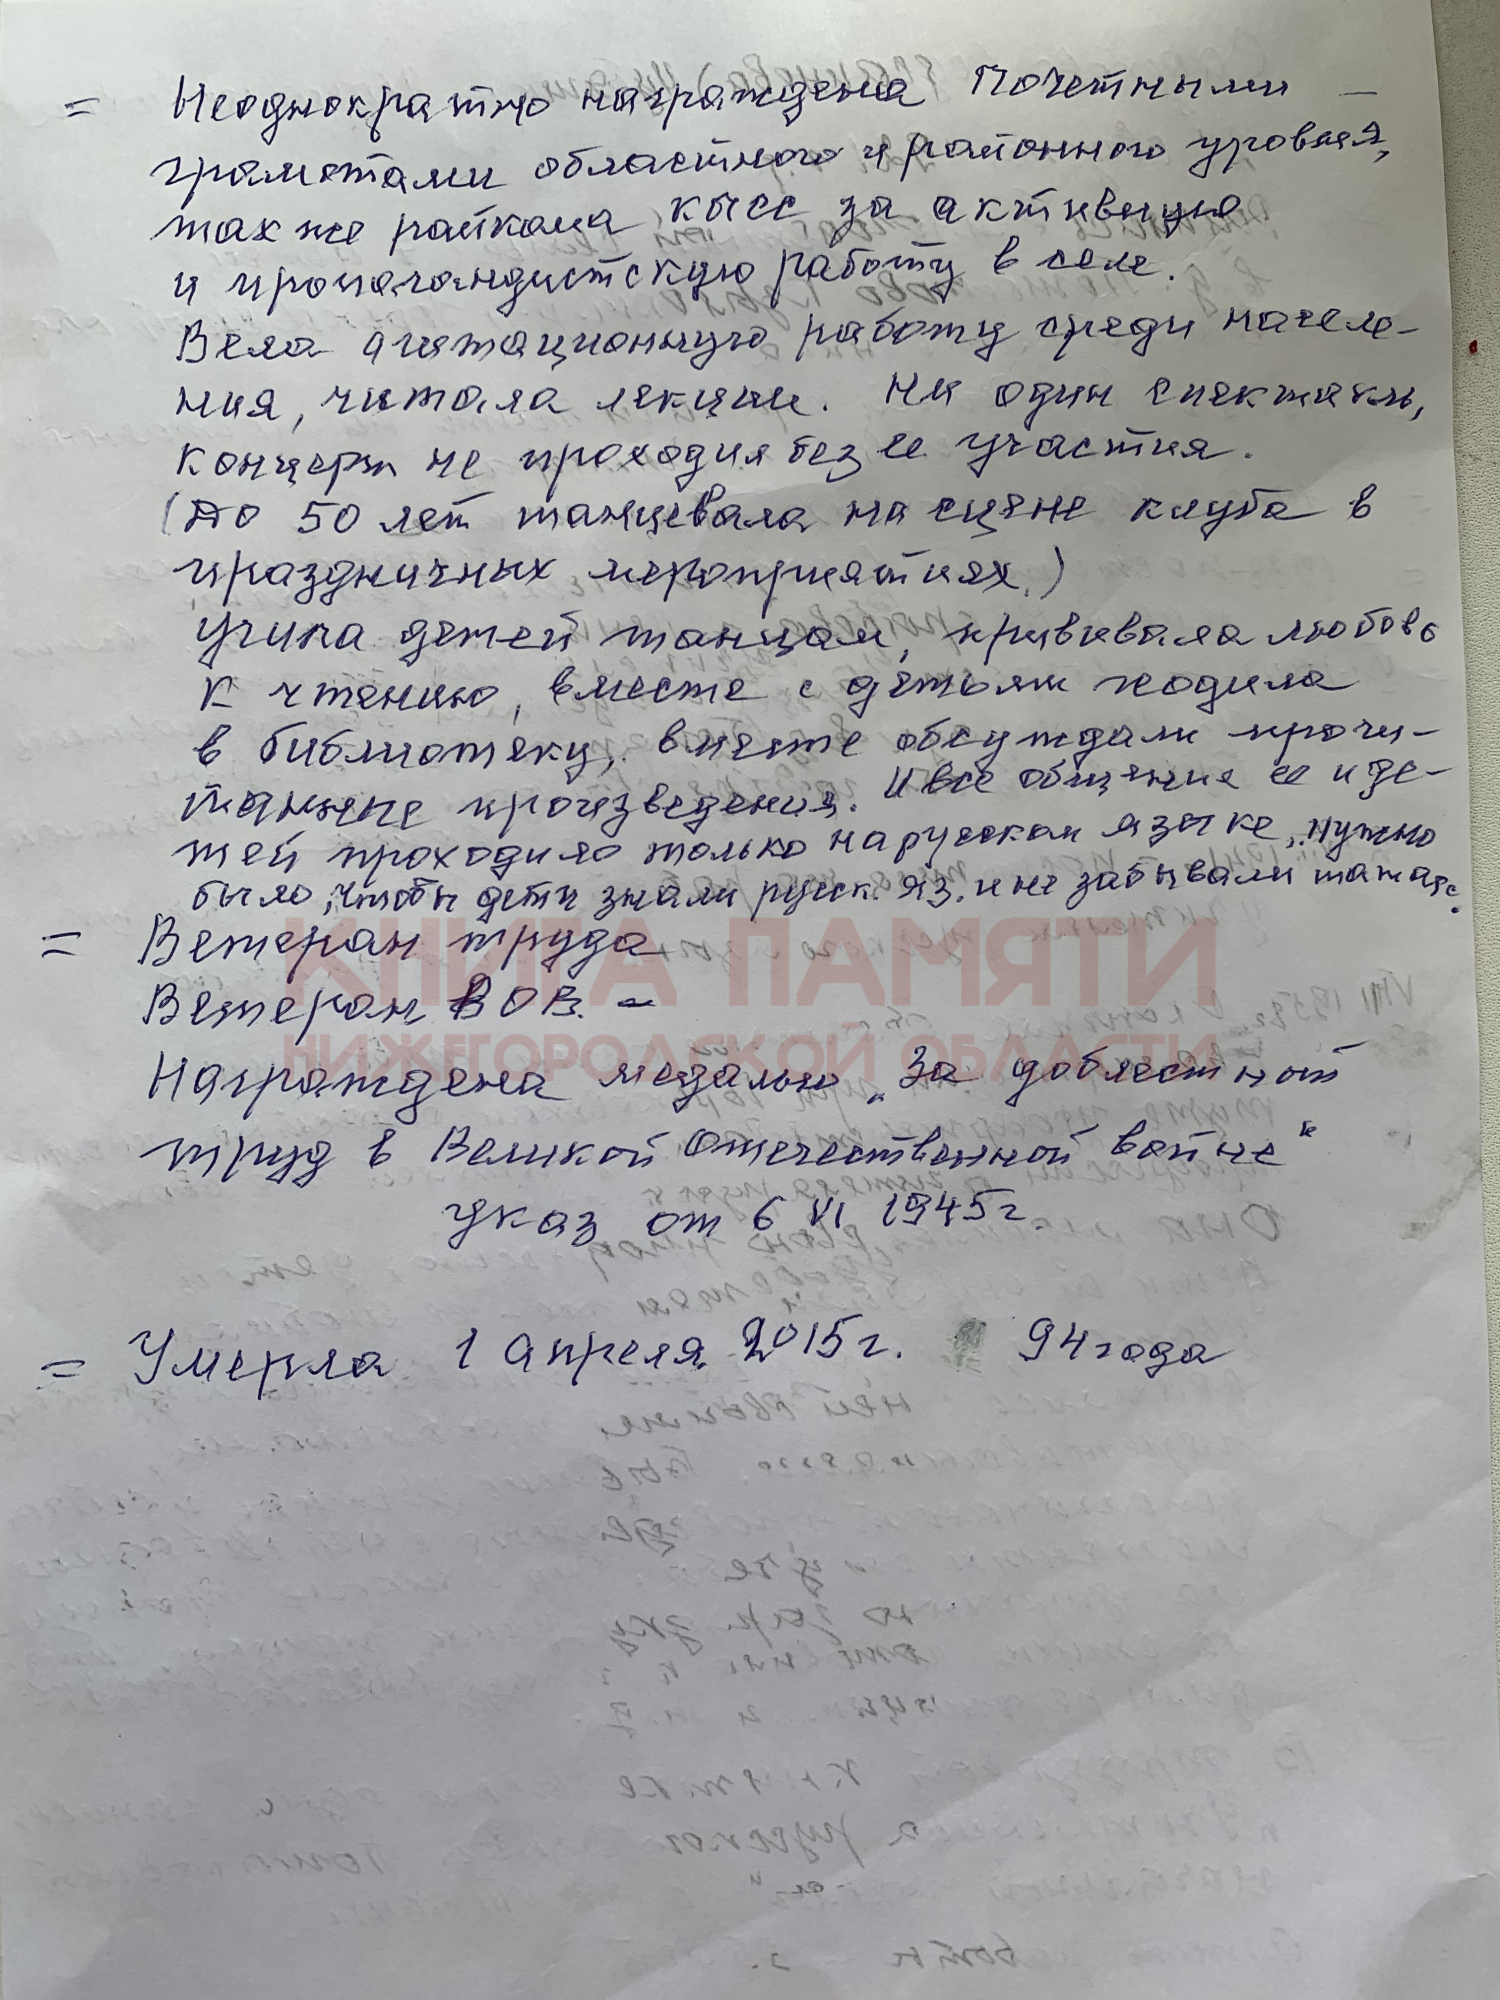 = Неоднократно награждена Почетными –
грамотами областного и районного уровня,
так же райкома КПСС за активную
и пропагандистскую работу в селе.
Вела агитационную работу среди населе-
ния, читала лекции. Ни один спектакль,
концерт не проходил без ее участия.
(До 50 лет танцевала на сцене клуба в
праздничных мероприятиях.)
Учила детей танцам, прививала любовь
к чтению, вместе с детьми ходила
в библиотеку, вместе обсуждали прочи-
танные произведения. И все общение ее и де-
тей проходило только на русском языке, нужно
было, чтобы дети знали русск. яз. и не забывали
= Ветеран труда
КНИГА ПАМЯТИ
Ветеран ВОВ. –
НИЖЕГОРОДСКОЙ ОБЛАСТИ
Награждена медалью „За доблестный
труд в Великой Отечественной войне"
Указ от 6 VI 1945г.
= Умерла 1 апреля 2015г. 94 года